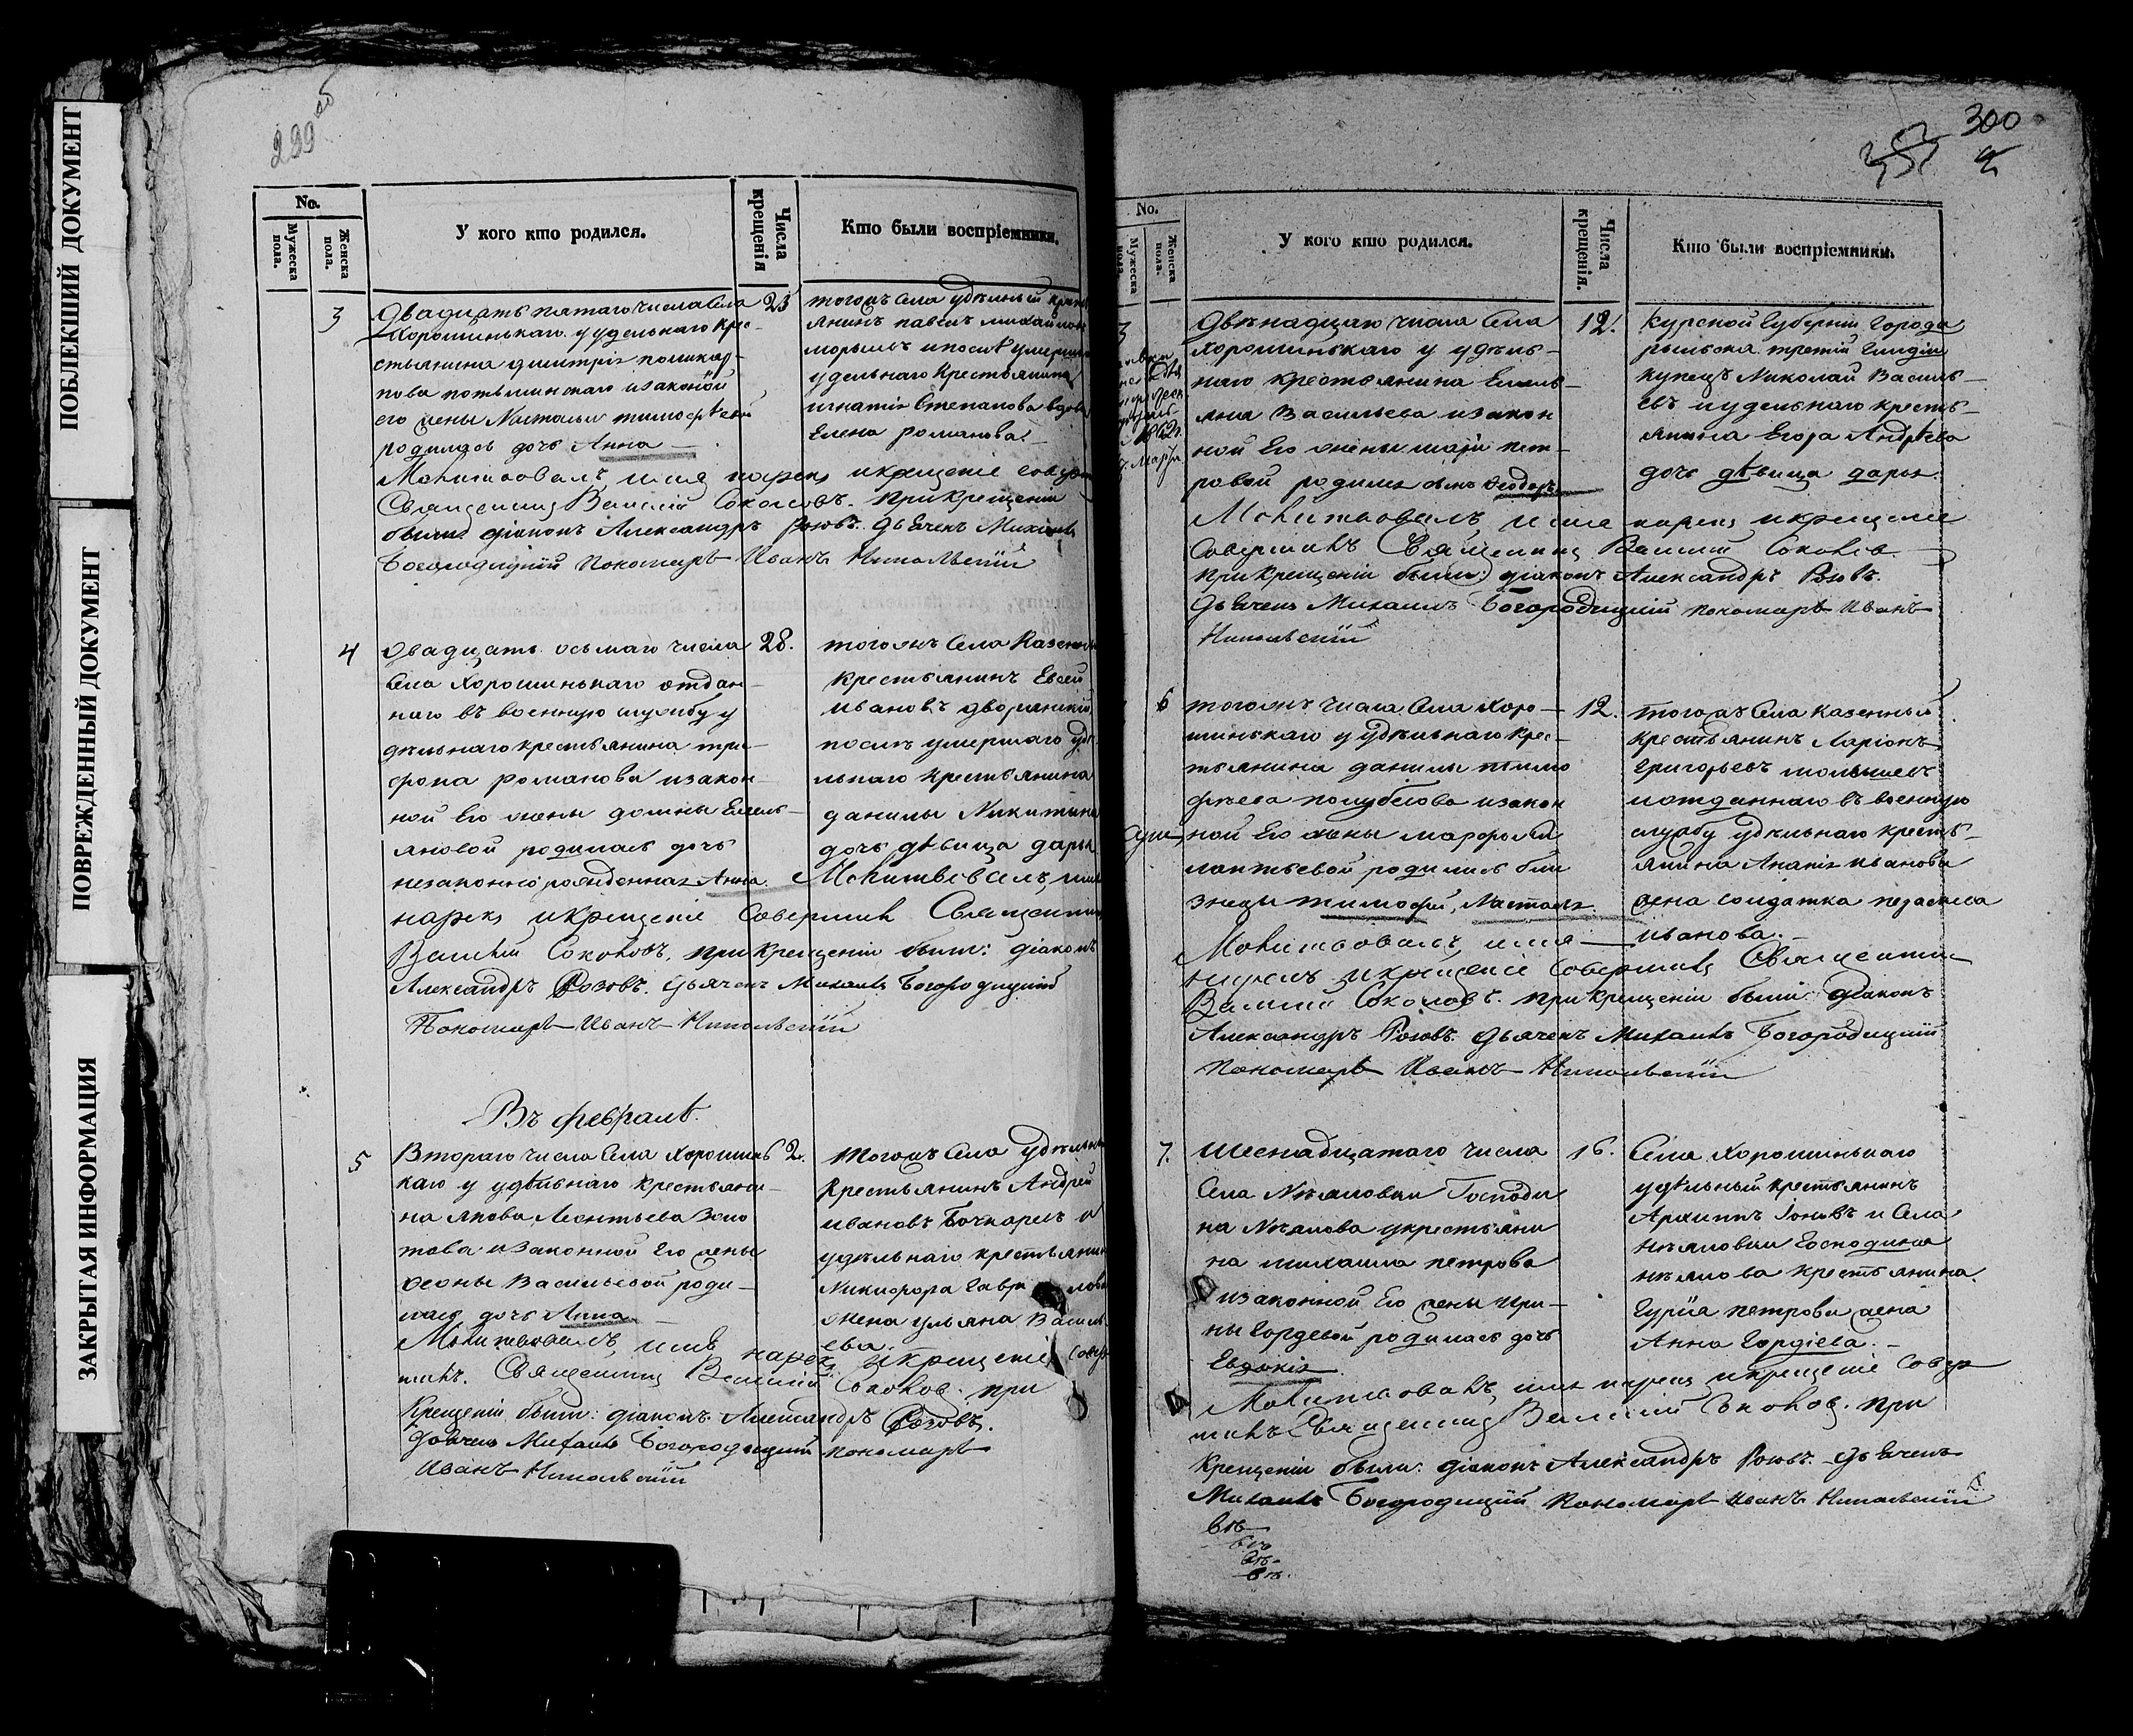 ПОБЛЕКШИЙ ДОКУМЕНТ
ПОВРЕЖДЕННЫЙ ДОКУМЕНТ
ЗАКРЫТАЯ ИНФОРМАЦИЯ
299 об
No.
Мужеска пола.
Женска пола.
У кого кто родился.
Числа крещенія
Кто были воспріемники.
3
Двадцать пятаго числа села
Хорошинькаго у удельнаго кре-
стьянина Димитрія поликар-
пова и законой
его жены Натальи тимофѣевой
родилась дочь Анна
23
тогожъ села удѣльный крест
янинъ павелъ михайлов
и после умерша
удельнаго крестьянина
игнатія Степанова вдова
Елена романова
Молитвовалъ, имя нарекъ и крещеніе совер
Священникъ Василій Соколовъ. при крещеніи
были: діаконъ Александръ Розовъ. дьячекъ Михаилъ
Богородицкій пономарь Иванъ Никольскій
4
двадцать осьмаго числа
села Хорошинькаго отдан-
наго въ военную службу у
дѣльнаго крестьянина три-
фона романова и закон-
ной Его жены домны Емель-
яновой родилась дочь
незаконнорожденная Анна.
28.
тогожъ села Казенны
крестьянинъ Евсей
ивановъ
послѣ умершаго удѣ
льнаго крестьянина
данилы Никитина
дочь дѣвица дарья
Молитвовалъ, имя
нарекъ и крещеніе совершилъ Священникъ
Василій Соколовъ, при крещеніи были: діаконъ
Александръ Розовъ. дьячекъ Михаилъ Богородицкій
Пономарь Иванъ Никольскій
Въ февралѣ.
5
Втораго числа села Хорошинь
каго у удѣльнаго крестьяни-
на якова Леонтьева Золо
това и законной Его жены
Ѳеоны Васильевой роди-
лась дочь Анна
2.
тогожъ села удѣльны
крестьянинъ Андрей
ивановъ Бочкаревъ и
удѣльнаго крестьянин
Никифора Гавр лова
жена ульяна Василь
ева.
Молитвовалъ, имя нарекъ и крещеніе совер
шилъ. Священникъ Василій Соколов. при
Крещеніи были: діаконъ Александръ Розовъ.
Дьячекъ Михаилъ Богородицкій пономарь
Иванъ Никольскій
300
No.
Мужеска пола.
Женска пола.
У кого кто родился.
Числа крещенія.
Кто были воспріемники.
3
1862г.
Двѣнадцаго числа села
Хорошинькаго у удѣль-
наго крестьянина Емель-
яна Васильева и закон
ной Его жены марьи пет-
ровой родился сынъ Ѳеодоръ
12.
Курской Губерніи города
рыльска третій гильдіи
купецъ Николай Василь-
евъ и удельнаго кресть-
янина Егора Андрѣева
дочь дѣвица дарья.
Молитвовалъ, имя нарекъ и крещеніе
совершилъ Священникъ Василій Соколов
при крещеніи были: діаконъ Александръ Розовъ.
дьячекъ Михаилъ Богородицкій пономарь Иванъ
Никольскій
6
тогожъ числа села Хоро-
шинькаго у удѣльнаго крес-
тьянина данилы тимо
фѣева и закон
ной Его жены марфы
родились бли
знецы тимофей, Наталья.
12.
тогожъ села казенный
крестьянинъ Ларіонъ
Григорьевъ
и отданнаго въ военную
службу удѣльнаго кресть-
янина Ананія иванова
жена солдатка пелагея
иванова.
Молитвовалъ, имя
нарекъ и крещеніе совершилъ Священникъ
Василій Соколовъ. при крещеніи были: діаконъ
Александръ Розовъ. дьячекъ Михаилъ Богородицкій
Пономарь Иванъ Никольскій
7.
шеснадцатаго числа
села Господи
на у крестьяни
на михаила петрова
и законной Его жены Ири-
ны гордевой родилась дочь
Евдокія
16.
Села Хорошинькаго
удѣльный крестьянинъ
Архипъ Іоновъ и села
Господина
крестьянина
Гурія петрова жена
Анна Гордіева.
Молитвовалъ, имя нарекъ и крещеніе совер
шилъ Священникъ Василій Соколов. при
крещеніи были: діаконъ Александръ Розовъ. дьячекъ
Михаилъ Богородицкій Пономарь Иванъ Никольскій
въ
въ
въ
въ.